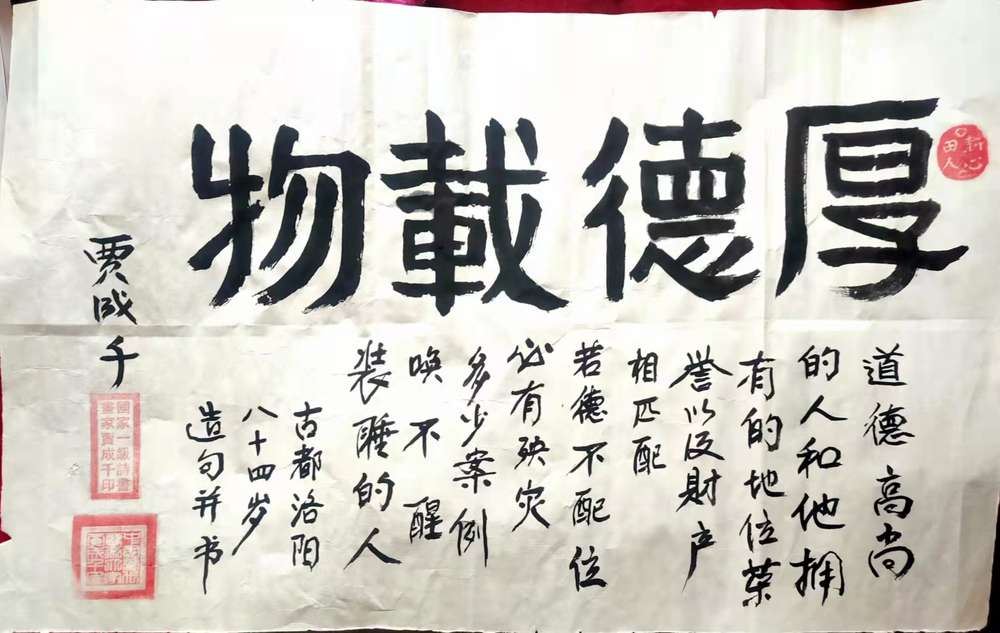 厚德載物
道德高尚
的人和他拥
有的地位荣
誉以及财产
相匹配
若德不配位
必有殃灾
多少案例
唤不醒
装睡的人
古都洛阳
八十四岁
造句并书
贾成千
國家一級詩書
畫家賈成千印